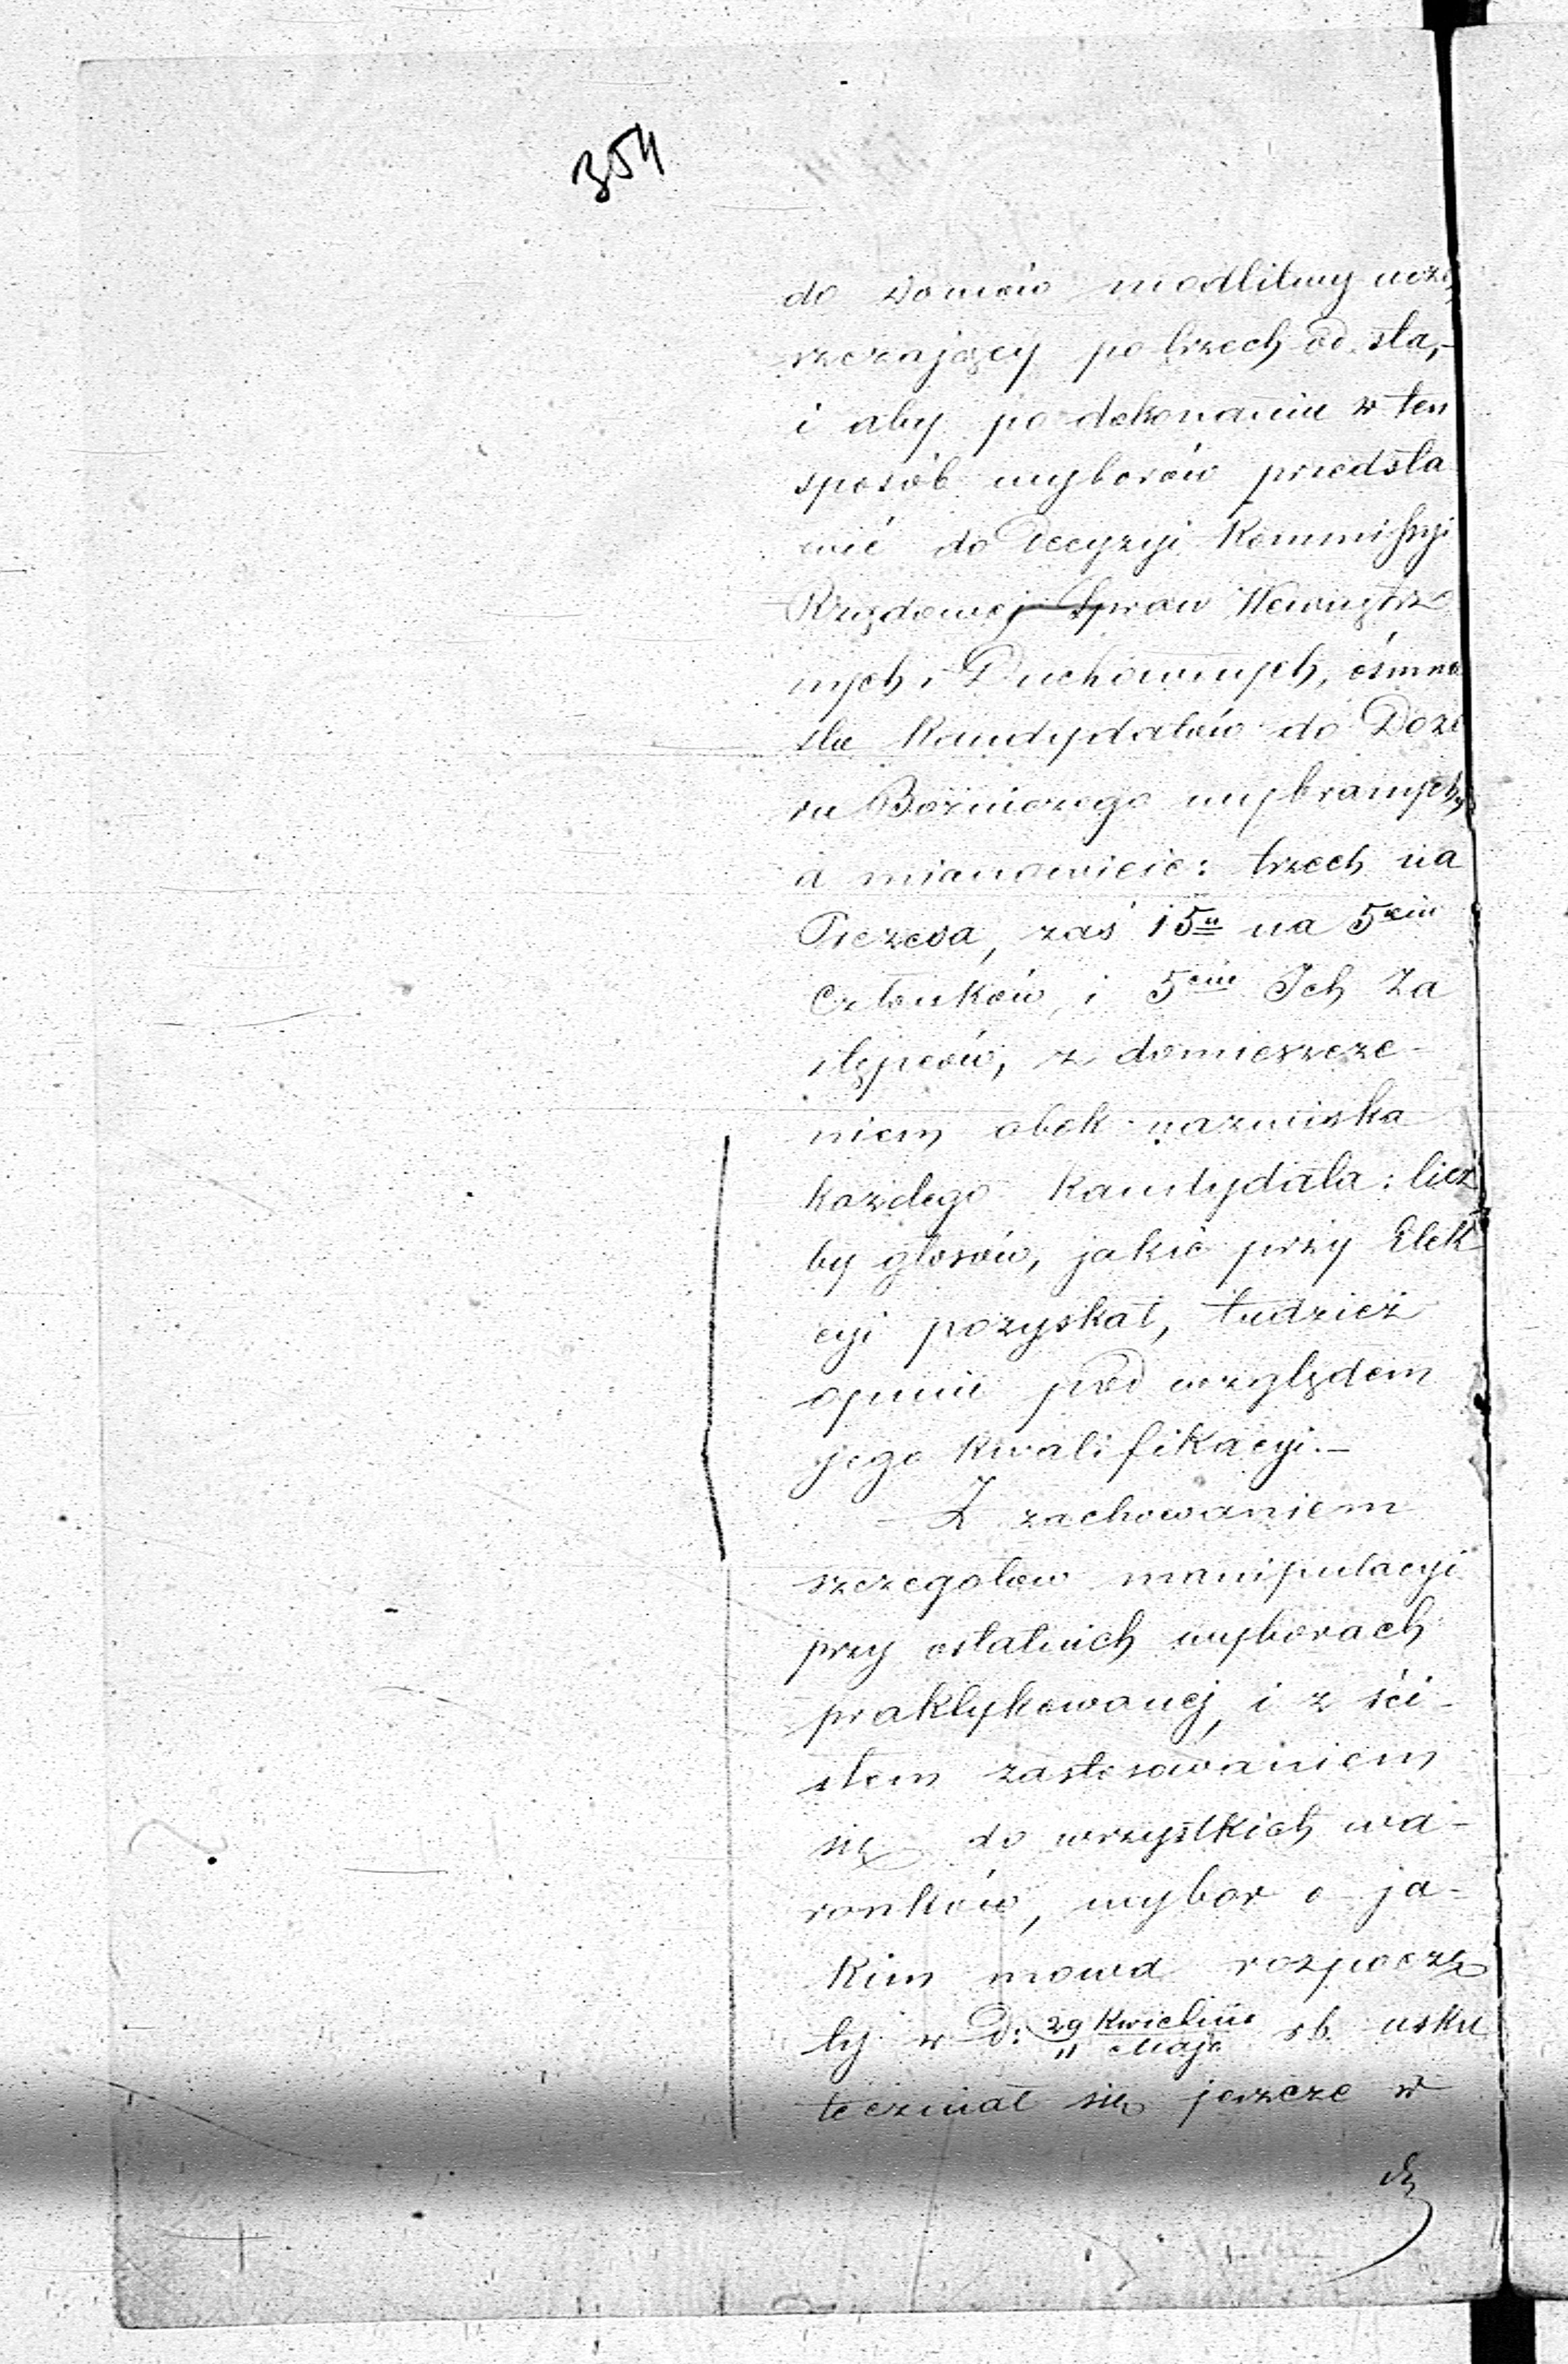 354
do Domów modlitwy uczę
szczający po trzech od sta,-
i aby po dokonaniu w ten
sposób wyborów przedsta
wić do Decyzyi Kommissyi
Rządowej Spraw Wewnętrz
nych i Duchownych, ośmna
stu Kandydatów do Dozo
ru Bożniczego wybranych,
a mianowicie: trzech na
Prezesa, zaś 15u na 5ciu
Członków, i 5ciu Ich Za
stępców, z domieszcze-
niem obok nazwiska
każdego Kandydata: licz
by głosów, jakie przy Elek
cyi pozyskał, tudzież
opinii pod względem
jego kwalifikacyi.-
Z zachowaniem
szczegołow manipulacyi
przy ostatnich wyborach
praktykowanej, i z ści-
słem zastosowaniem
się do wszystkich wa-
ronków, wybor o ja-
kim mowa rozpoczę
ty w D: 29 Kwietnia / 11 Maja rb. usku
teczniał się jeszcze w